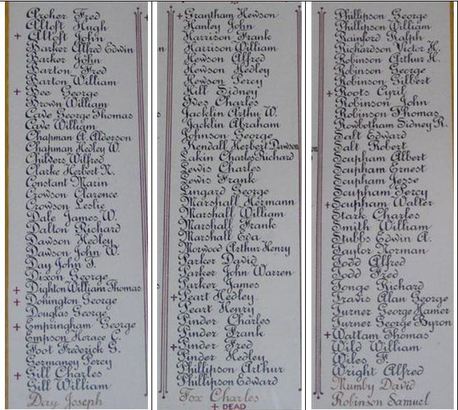 Archer Fred
Allott Hugh
+ Allott John
Barker Alfred Edwin
Barker John
Barton Fred
Barton William
+ Bee George
Brown William
Cave George Thomas
Cave William
Chapman A. Alderson
Chapman Hedley W.
Childers Wilfred
Clarke Herbert R.
Constant Marin
Crowson Clarence
Crowson Leslie
Dale James W.
Dalton Richard
Dawson Hedley
Dawson John W.
Day John T.
Dixon George
+ Dighton William Thomas
+ Donington George
Douglas George
+ Empringham George
Empson Horace E.
Foot Frederick G.
Germaney Percy
+ Gill Charles
Gill William
Day Joseph
+ Grantham Hewson
Hanley John
Harrison Frank
Harrison William
Howson Alfred
Howson Hedley
Howson Percy
Hill Sidney
Ives Charles
Jacklin Arthur W.
Jacklin Abraham
Johnson George
Kendall Herbert Dawson
Lakin Charles Richard
Lewis Charles
Lewis Frank
Lingard George
Marshall Hermann
Marshall William
Marshall Frank
Marshall
Maswood Arthur Henry
Parker David
Parker John Warren
Parker James
+ Peart Hedley
Peart Henry
Pinder Charles
Pinder Frank
+ Pinder Fred
Pinder Hedley
Phillipson Arthur
Phillipson Edward
Fox Charles
+ DEAD
Phillipson George
Phillipson William
Rainford Ralph
Richardson Victor H.
Robinson Arthur H.
Robinson George
Robinson Gilbert
+ Roots Cyril
Robinson John
Robinson Thomas
Rowbotham Sidney R.
Salt Edward
Salt Robert
Scupham Albert
Scupham Ernest
Scupham Jesse
Scupham Percy
+ Scupham Walter
Stark Charles
Smith William
Stubbs Edwin A.
Taylor Norman
Todd Alfred
Todd Fred
Tonge Richard
Travis Alan George
Turner George Hamer
Turner George Byron
+ Waltam Thomas
Wild William
Wiles F.
Wright Alfred
Mumby David
Robinson Samuel